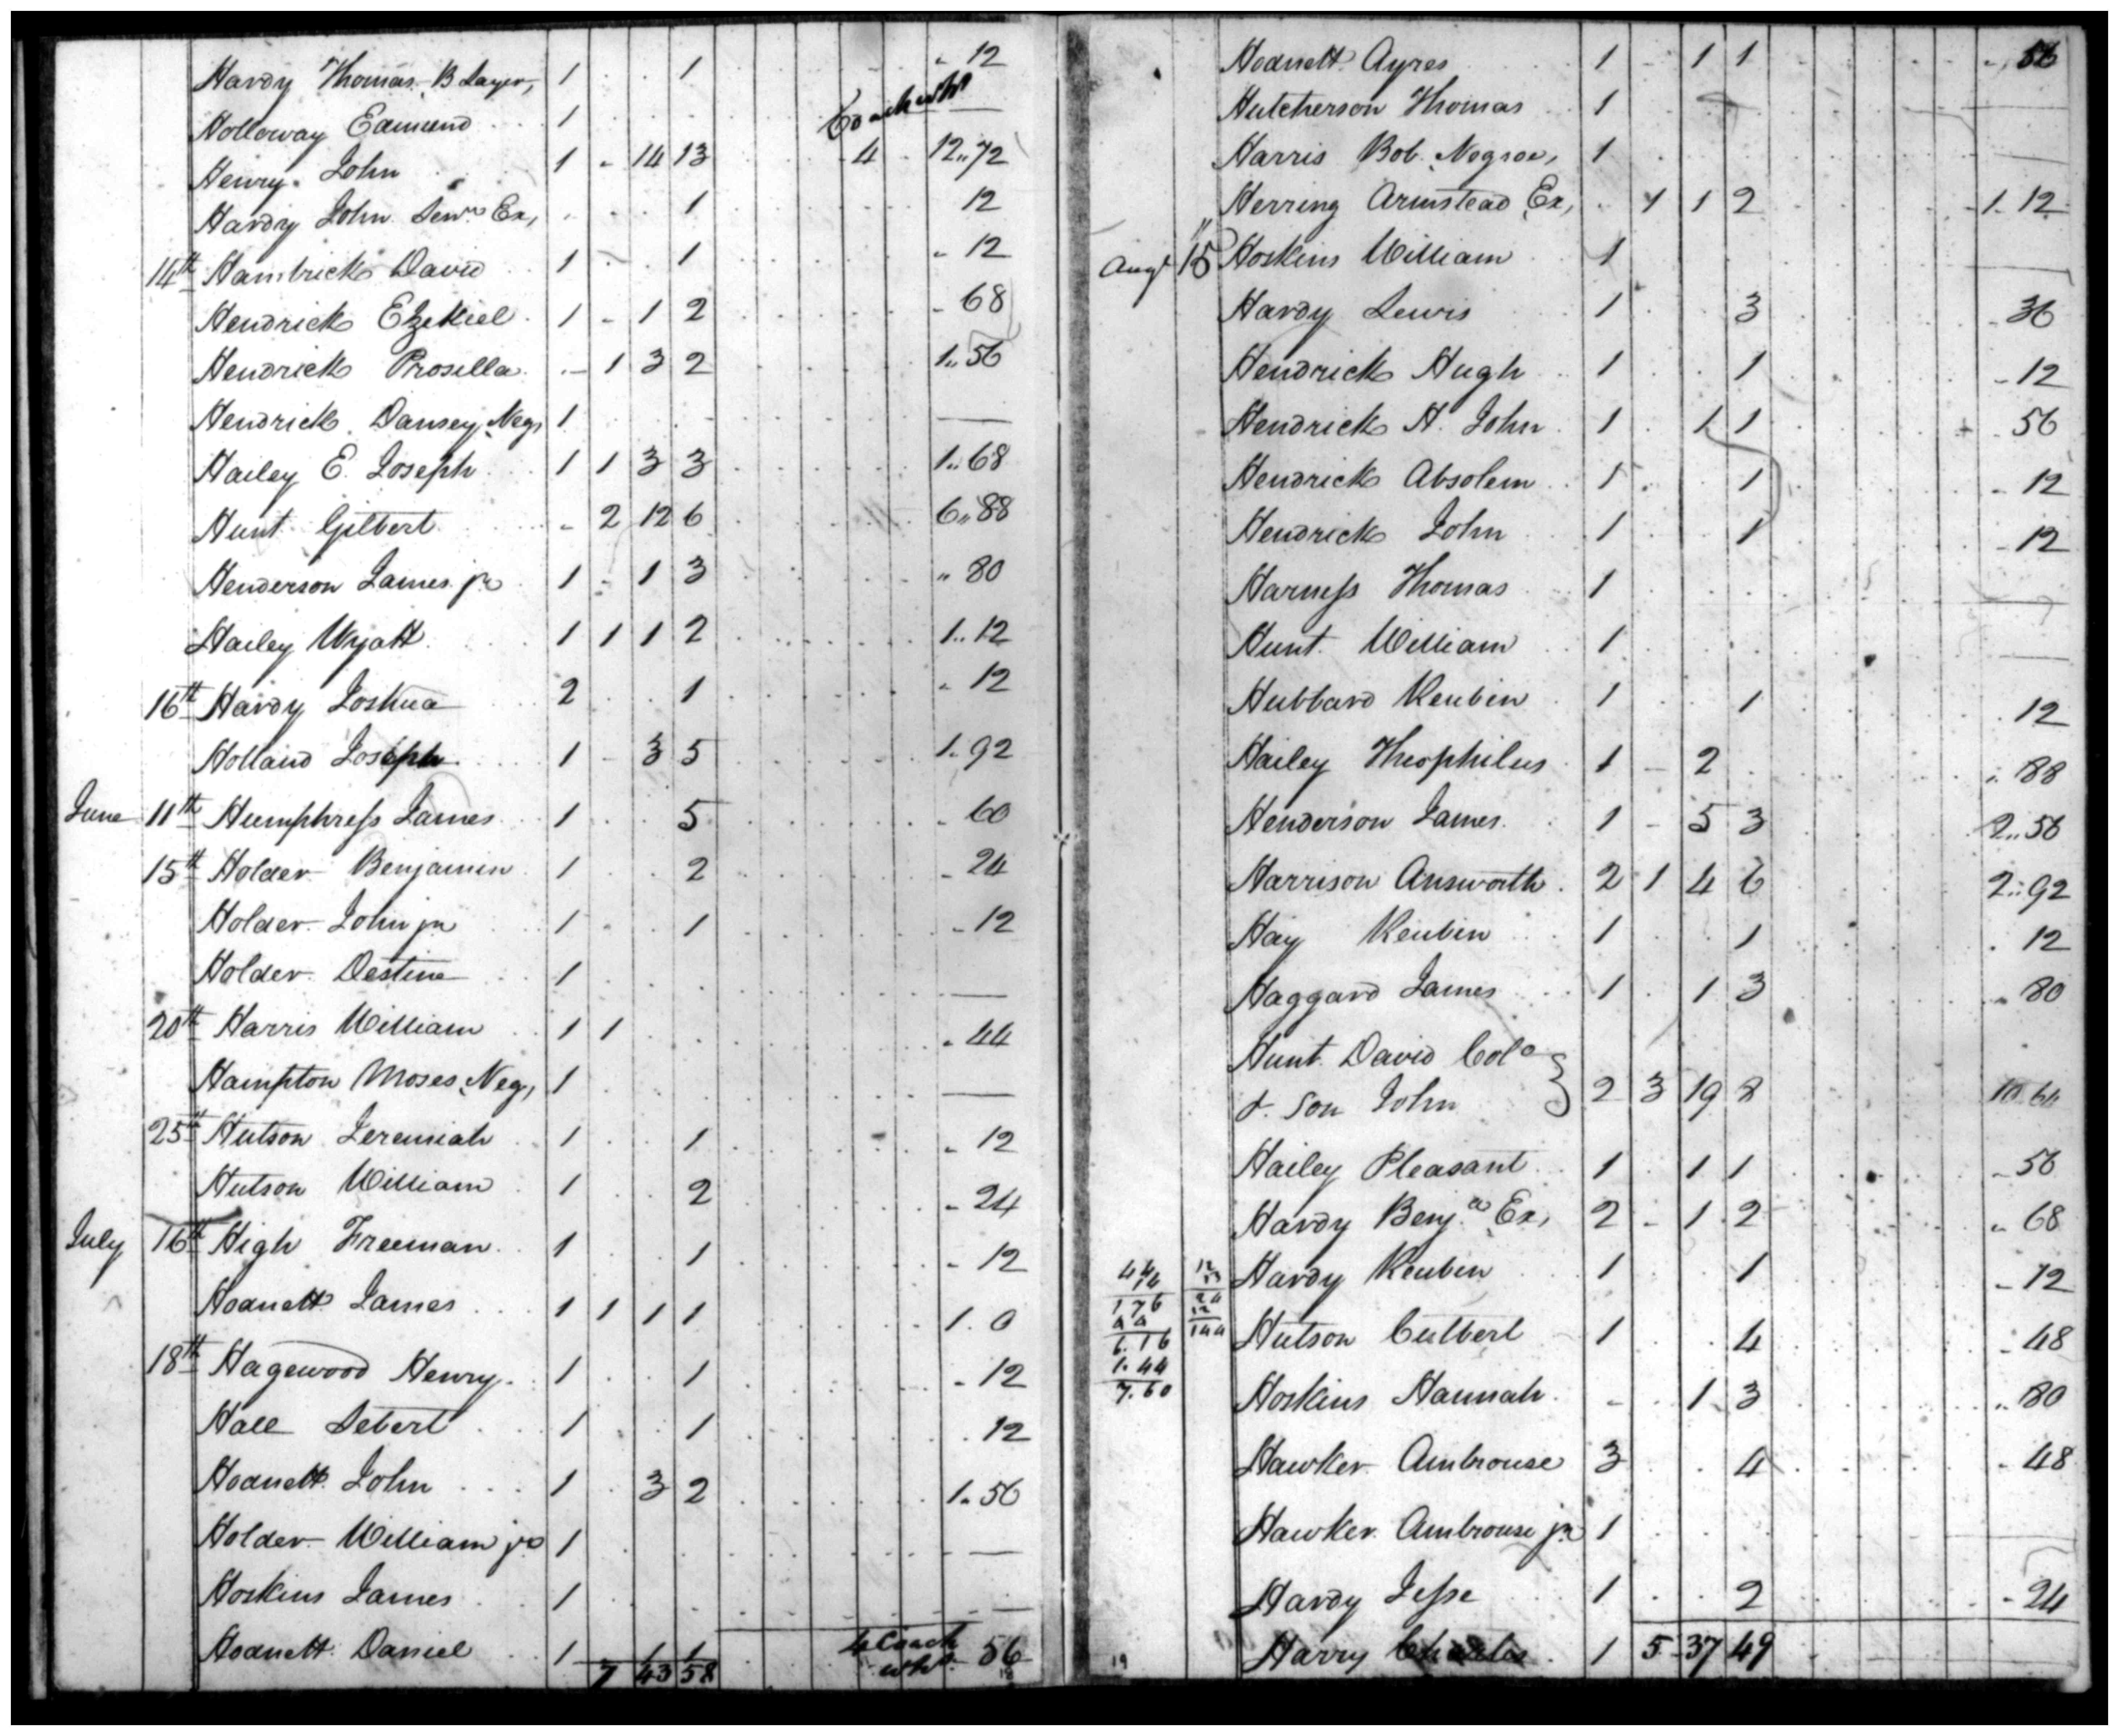 Hardy Thomas, B Layer, 1 . . 1 " 12
Holloway Edmund 1 Coach whl —
Henry John 1 - 14 13 4 12.. 72
Hardy John Senr Ex, . . . 1 12
14th Hambrick David 1 . . 1 - 12
Hendrick Ezekiel 1 - 1 2 - 68
Hendrick Prosilla - 1 3 2 1.. 56
Hendrick Dansey, Neg, 1 —
Hailey E. Joseph 1 1 3 3 1.. 68
Hunt Gilbert - 2 12 6 6.. 88
Henderson James jr 1 - 1 3 " 80
Hailey Wyatt 1 1 1 2 1.. 12
16th Hardy Joshua 2 . . 1 - 12
Holland Joseph 1 - 3 5 1. 92
June 11th Humphress James 1 . . 5 - 60
15th Holder Benjamin 1 . . 2 - 24
Holder John jr 1 . . 1 - 12
Holder Destine 1 —
20th Harris William 1 1 - 44
Hampton Moses, Neg, 1 —
25th Hutson Jeremiah 1 . . 1 - 12
Hutson William 1 . . 2 - 24
July 16th High Freeman 1 . . 1 - 12
Hodnett James 1 1 1 1 1. 0
18th Hagewood Henry 1 . . 1 - 12
Hall Sebert 1 . . 1 . 12
Hodnett John 1 . 3 2 1. 56
Holder William jr 1 —
Hoskins James 1 —
Hodnett Daniel 1 1 1 4 Coach whs - 56
7 43 58
Hodnett Ayres 1 - 1 1 56
Hutcherson Thomas 1 —
Harris Bob, Negroe, 1 —
Herring Armstead, Ex, . 1 1 2 1. 12
Augt 15 Hoskins William 1 —
Hardy Lewis 1 . . 3 - 36
Hendrick Hugh 1 . . 1 - 12
Hendrick H. John 1 . 1 1 56
Hendrick Absolem 1 . . 1 - 12
Hendrick John 1 . . 1 - 12
Harness Thomas 1 —
Hunt William 1 —
Hubbard Reubin 1 . . 1 . 12
Hailey Theophilus 1 - 2 . 88
Henderson James 1 - 5 3 2.. 56
Harrison Answorth 2 1 4 6 2.. 92
Hay Reubin 1 . . 1 . 12
Haggard James 1 . 1 3 - 80
Hunt David Colo
& Son John } 2 3 19 8 10. 64
Hailey Pleasant 1 . 1 1 - 56
Hardy Benja Ex, 2 - 1 2 " 68
Hardy Reuben 1 . . 1 - 12
44 14
176
44
6.16
1.44
7.60
12
24
12
144
Hutson Culbert 1 . . 4 - 48
Hoskins Hannah - . 1 3 .. 80
Hawker Ambrouse 3 . . 4 - 48
Hawker Ambrouse jr 1 —
Hardy Jesse 1 . . 2 - 24
19 Harry Charles 1 5 37 49